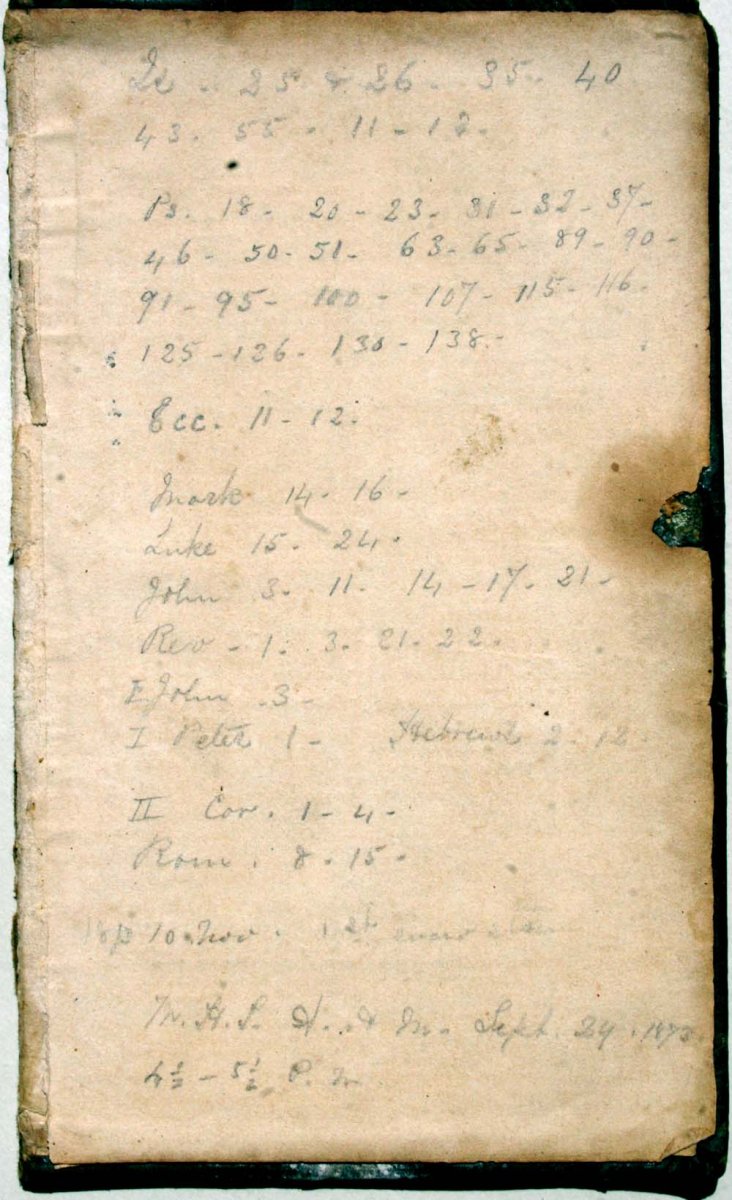 Is - 25 & 26 - 35 - 40
43 - 55 - 11 - 12 -
Ps. 18 - 20 - 23 - 31 - 32 - 37 -
46 - 50 - 51 - 63 - 65 - 89 - 90 -
91 - 95 - 100 - 107 - 115 - 116 -
125 - 126 - 130 - 138 -
Ecc. 11 - 12 -
Mark 14 - 16 -
Luke 15 - 24 -
John 3 - 11 - 14 - 17 - 21 -
Rev - 1 - 3 - 21 - 22 -
I John - 3 -
I Peter 1 - Hebrews 2 - 12 -
II Cor. 1 - 4 -
Rom. 8 - 15 -
10 Nov. 1st snow
M. H. S. H. & M. Sept. 24
4½ - 5½ P. M